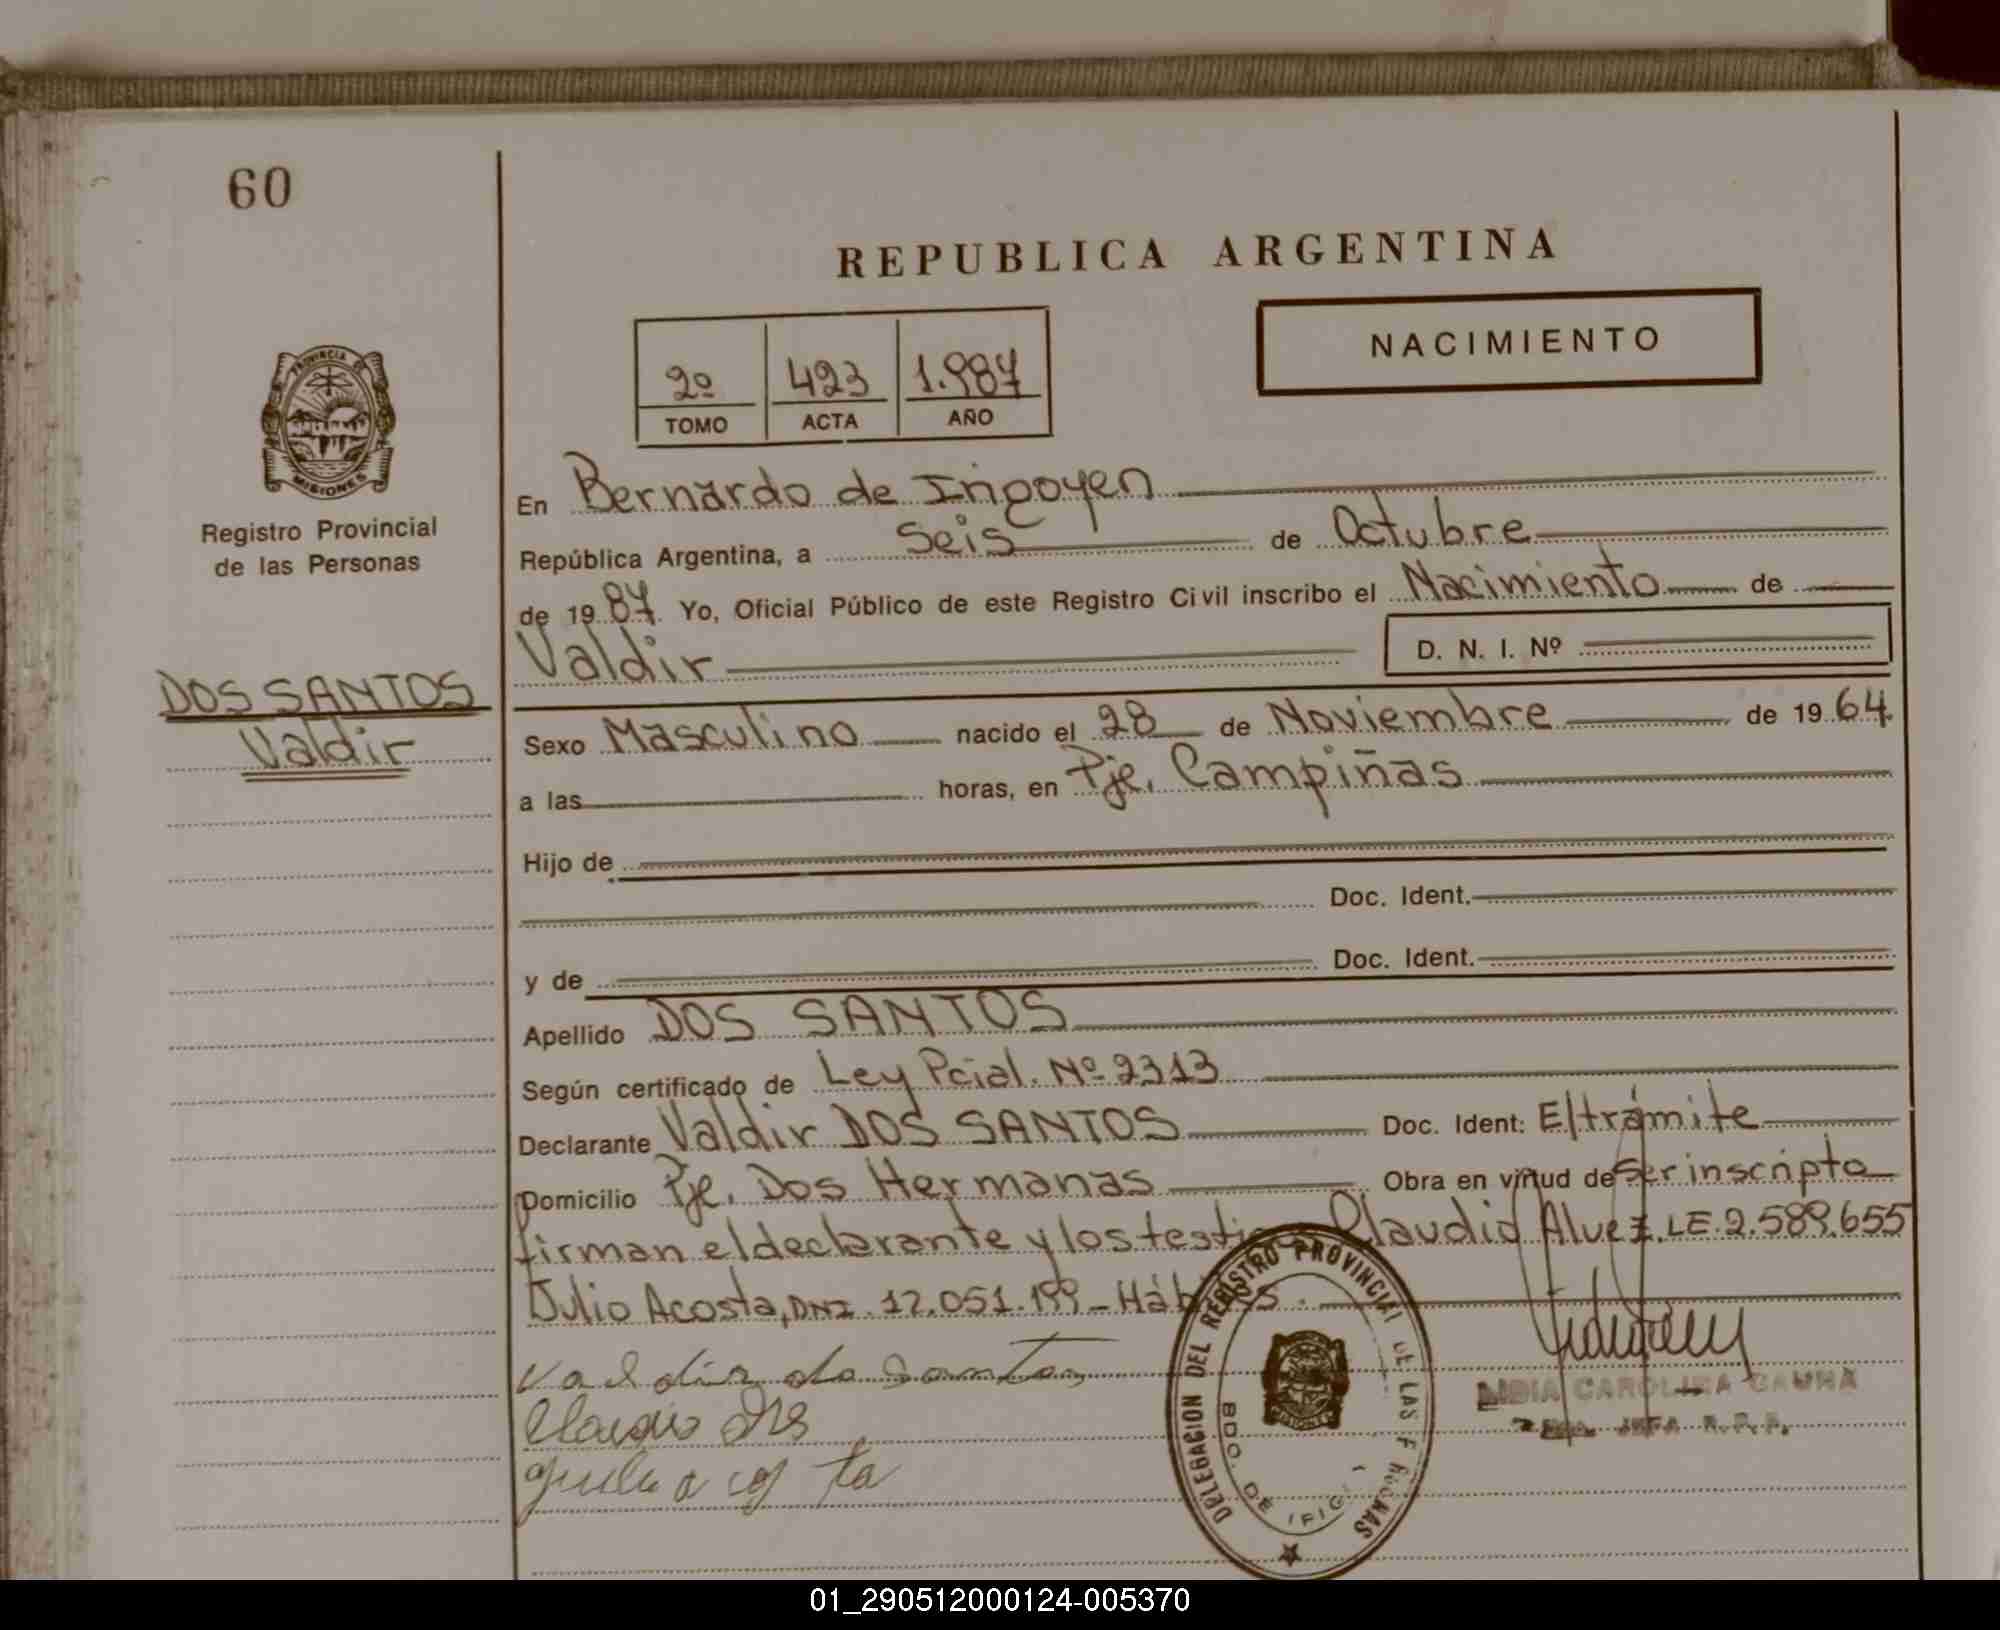 60
REPUBLICA ARGENTINA
NACIMIENTO
2º 423 1.987
TOMO ACTA AÑO
PROVINCIA
MISIONES
Registro Provincial
de las Personas
DOS SANTOS
Valdir
En Bernardo de Irigoyen
República Argentina, a Seis de Octubre
de 1987. Yo, Oficial Público de este Registro Civil inscribo el Nacimiento de
Valdir D. N. I. Nº
Sexo Masculino nacido el 28 de Noviembre de 1964.
a las horas, en Pje. Campiñas
Hijo de
Doc. Ident.
y de Doc. Ident.
Apellido DOS SANTOS
Según certificado de Ley Pcial. Nº 2313
Declarante Valdir DOS SANTOS Doc. Ident: E/trámite
Domicilio Pje. Dos Hermanas Obra en virtud de Ser inscripto
firman el declarante y los Claudio Alvez. LE. 2.589.655
Julio Acosta, DNI. 12.051.199 -
Valdir do santos
Claudio
DELEGACION DEL REGISTRO PROVINCIAL DE LAS
BDO. DE
LIDIA CAROLINA
JEFA R.P.P.
01_290512000124-005370